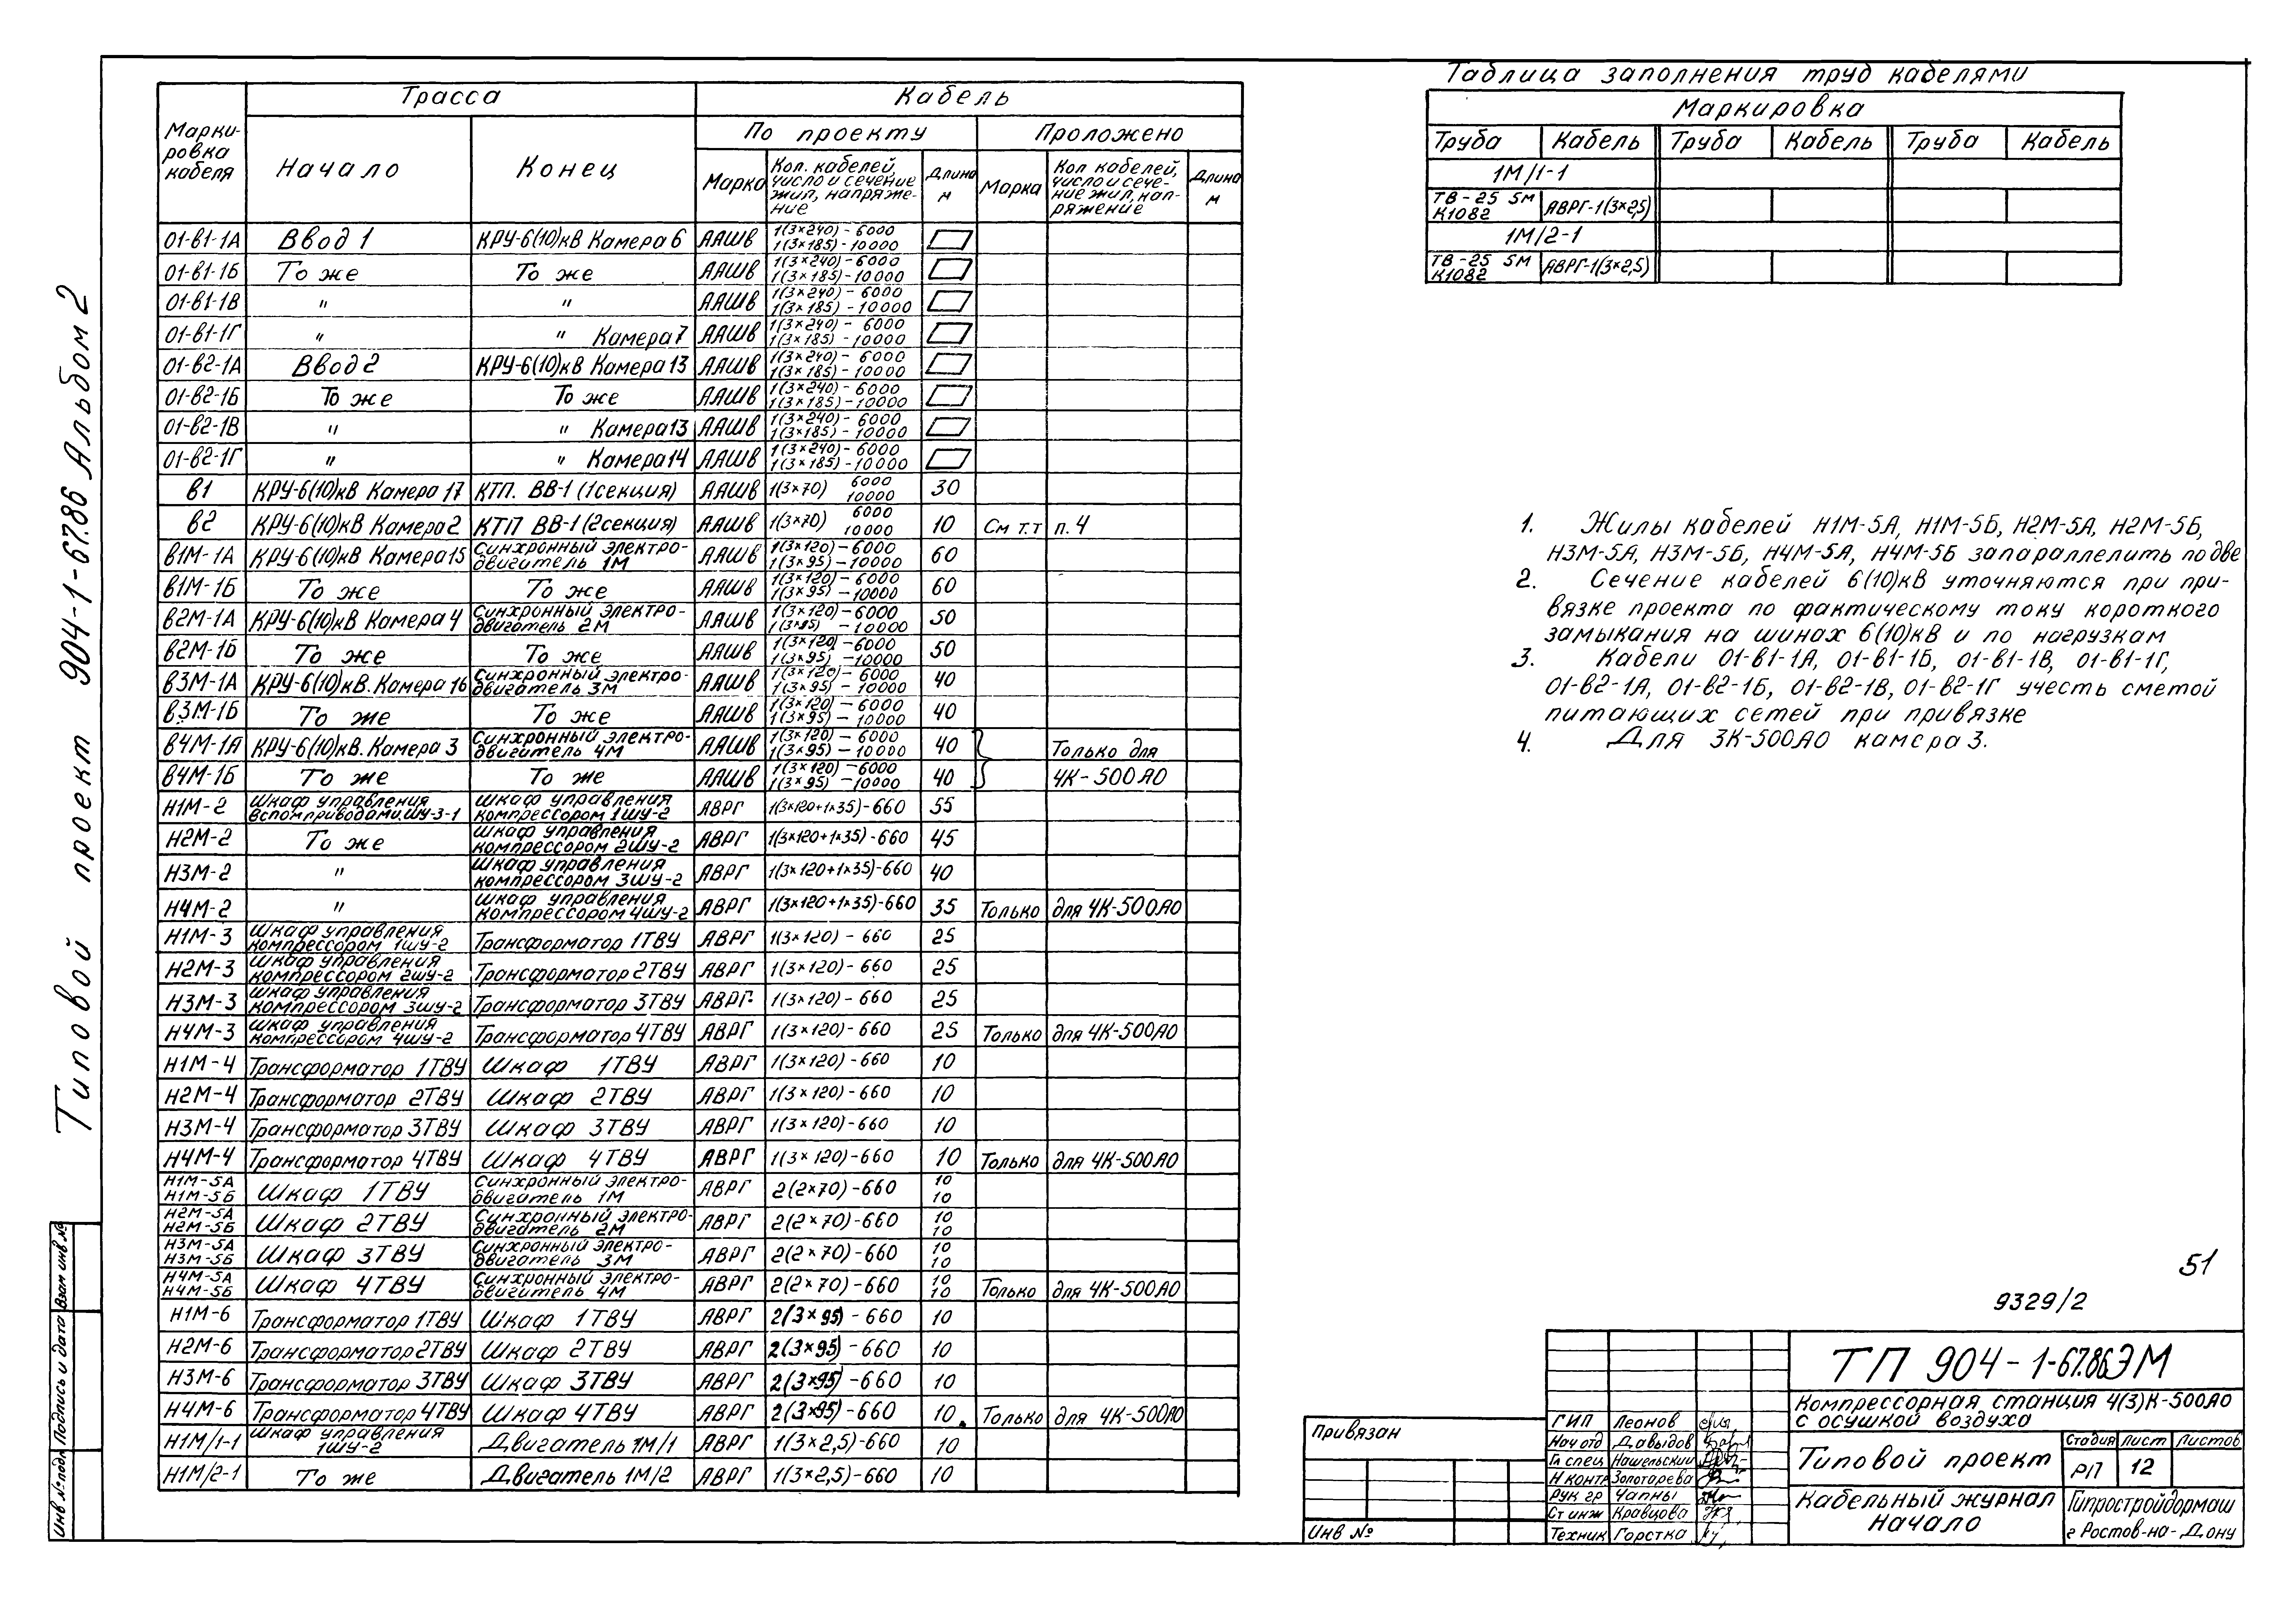 Типовой проект 904-1-67.86 Альбом 2
Маркировка кабеля | Трасса | Кабель
Начало | Конец | По проекту | Проложено
Марка | Кол. кабелей, число и сечение жил, напряжение | Длина м | Марка | Кол кабелей, число и сечение жил, напряжение | Длина м
01-В1-1А | Ввод 1 | КРУ-6(10)кВ Камера 6 | ААШВ | 1(3×240) - 6000 1(3×185) - 10000
01-В1-1Б | То же | То же | ААШВ | 1(3×240) - 6000 1(3×185) - 10000
01-В1-1В | " | " | ААШВ | 1(3×240) - 6000 1(3×185) - 10000
01-В1-1Г | " | " Камера 7 | ААШВ | 1(3×240) - 6000 1(3×185) - 10000
01-В2-1А | Ввод 2 | КРУ-6(10)кВ Камера 13 | ААШВ | 1(3×240) - 6000 1(3×185) - 10000
01-В2-1Б | То же | То же | ААШВ | 1(3×240) - 6000 1(3×185) - 10000
01-В2-1В | " | " Камера 13 | ААШВ | 1(3×240) - 6000 1(3×185) - 10000
01-В2-1Г | " | " Камера 14 | ААШВ | 1(3×240) - 6000 1(3×185) - 10000
В1 | КРУ-6(10)кВ Камера 17 | КТП. ВВ-1 (1секция) | ААШВ | 1(3×70) 6000 10000 | 30
В2 | КРУ-6(10)кВ Камера 2 | КТП ВВ-1 (2секция) | ААШВ | 1(3×70) 6000 10000 | 10 | См т.т | п. 4
В1М-1А | КРУ-6(10)кВ Камера 15 | Синхронный электродвигатель 1М | ААШВ | 1(3×120) - 6000 1(3×95) - 10000 | 60
В1М-1Б | То же | То же | ААШВ | 1(3×120) - 6000 1(3×95) - 10000 | 60
В2М-1А | КРУ-6(10)кВ Камера 4 | Синхронный электродвигатель 2М | ААШВ | 1(3×120) - 6000 1(3×95) - 10000 | 50
В2М-1Б | То же | То же | ААШВ | 1(3×120) - 6000 1(3×95) - 10000 | 50
В3М-1А | КРУ-6(10)кВ. Камера 16 | Синхронный электродвигатель 3М | ААШВ | 1(3×120) - 6000 1(3×95) - 10000 | 40
В3М-1Б | То же | То же | ААШВ | 1(3×120) - 6000 1(3×95) - 10000 | 40
В4М-1А | КРУ-6(10)кВ. Камера 3 | Синхронный электродвигатель 4М | ААШВ | 1(3×120) - 6000 1(3×95) - 10000 | 40 | Только для
В4М-1Б | То же | То же | ААШВ | 1(3×120) - 6000 1(3×95) - 10000 | 40 | 4К-500АО
Н1М-2 | Шкаф управления вспомприводами, ШУ-3-1 | Шкаф управления компрессором 1ШУ-2 | АВРГ | 1(3×120+1×35)-660 | 55
Н2М-2 | То же | Шкаф управления компрессором 2ШУ-2 | АВРГ | 1(3×120+1×35)-660 | 45
Н3М-2 | " | Шкаф управления компрессором 3ШУ-2 | АВРГ | 1(3×120+1×35)-660 | 40
Н4М-2 | " | Шкаф управления компрессором 4ШУ-2 | АВРГ | 1(3×120+1×35)-660 | 35 | Только | для 4К-500АО
Н1М-3 | Шкаф управления компрессором 1ШУ-2 | Трансформатор 1ТВУ | АВРГ | 1(3×120) - 660 | 25
Н2М-3 | Шкаф управления компрессором 2ШУ-2 | Трансформатор 2ТВУ | АВРГ | 1(3×120) - 660 | 25
Н3М-3 | Шкаф управления компрессором 3ШУ-2 | Трансформатор 3ТВУ | АВРГ. | 1(3×120) - 660 | 25
Н4М-3 | Шкаф управления компрессором 4ШУ-2 | Трансформатор 4ТВУ | АВРГ | 1(3×120) - 660 | 25 | Только | для 4К-500АО
Н1М-4 | Трансформатор 1ТВУ | Шкаф 1ТВУ | АВРГ | 1(3×120) - 660 | 10
Н2М-4 | Трансформатор 2ТВУ | Шкаф 2ТВУ | АВРГ | 1(3×120) - 660 | 10
Н3М-4 | Трансформатор 3ТВУ | Шкаф 3ТВУ | АВРГ | 1(3×120) - 660 | 10
Н4М-4 | Трансформатор 4ТВУ | Шкаф 4ТВУ | АВРГ | 1(3×120) - 660 | 10 | Только | для 4К-500АО
Н1М-5А Н1М-5Б | Шкаф 1ТВУ | Синхронный электродвигатель 1М | АВРГ | 2(2×70)-660 | 10 10
Н2М-5А Н2М-5Б | Шкаф 2ТВУ | Синхронный электродвигатель 2М | АВРГ | 2(2×70)-660 | 10 10
Н3М-5А Н3М-5Б | Шкаф 3ТВУ | Синхронный электродвигатель 3М | АВРГ | 2(2×70)-660 | 10 10
Н4М-5А Н4М-5Б | Шкаф 4ТВУ | Синхронный электродвигатель 4М | АВРГ | 2(2×70)-660 | 10 10 | Только | для 4К-500АО
Н1М-6 | Трансформатор 1ТВУ | Шкаф 1ТВУ | АВРГ | 2(3×95) - 660 | 10
Н2М-6 | Трансформатор 2ТВУ | Шкаф 2ТВУ | АВРГ | 2(3×95) - 660 | 10
Н3М-6 | Трансформатор 3ТВУ | Шкаф 3ТВУ | АВРГ | 2(3×95) - 660 | 10
Н4М-6 | Трансформатор 4ТВУ | Шкаф 4ТВУ | АВРГ | 2(3×95) - 660 | 10. | Только | для 4К-500АО
Н1М/1-1 | Шкаф управления 1ШУ-2 | Двигатель 1М/1 | АВРГ | 1(3×2,5)-660 | 10
Н1М/2-1 | То же | Двигатель 1М/2 | АВРГ | 1(3×2,5)-660 | 10
Таблица заполнения труд кабелями
Маркировка
Труба | Кабель | Труба | Кабель | Труба | Кабель
1М/1-1
ТВ-25 5м К1082 | АВРГ-1(3×2,5)
1М/2-1
ТВ-25 5м К1082 | АВРГ-1(3×2,5)
1. Жилы кабелей Н1М-5А, Н1М-5Б, Н2М-5А, Н2М-5Б,
Н3М-5А, Н3М-5Б, Н4М-5А, Н4М-5Б запараллелить по две
2. Сечение кабелей 6(10)кВ уточняются при при-
вязке проекта по фактическому току короткого
замыкания на шинах 6(10)кВ и по нагрузкам
3. Кабели 01-В1-1А, 01-В1-1Б, 01-В1-1В, 01-В1-1Г,
01-В2-1А, 01-В2-1Б, 01-В2-1В, 01-В2-1Г учесть сметой
питающих сетей при привязке
4. Для 3К-500АО камера 3.
51
9329/2
ТП 904-1-67.86ЭМ
Компрессорная станция 4(3)К-500АО
с осушкой воздуха
Типовой проект
Стадия | Лист | Листов
РП | 12
Кабельный журнал
Начало
Гипростройдормаш
г Ростов-на-Дону
ГИП Леонов
Нач отд Давыдов
Гл спец Нашельский
Н контр Золотарева
Рук гр Чапны
Ст инж Кравцова
Техник Горстка
Привязан
Инв №
Взам инв №
Подпись и дата
Инв № подл